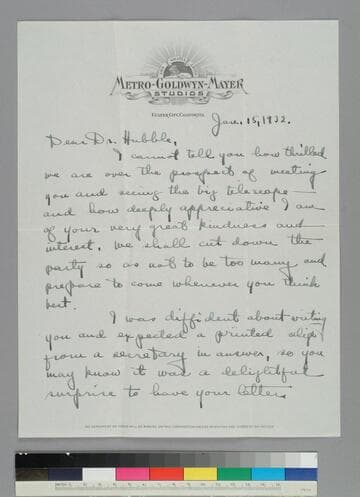 METRO-GOLDWYN-MAYER
STUDIOS
CULVER CITY, CALIFORNIA
Jan. 15, 1932.
Dear Dr. Hubble,
I cannot tell you how thrilled
we are over the prospect of meeting
you and seeing the big telescope —
and how deeply appreciative I am
of your very great kindness and
interest. We shall cut down the
party so as not to be too many and
prepare to come whenever you think
best.
I was diffident about writing
you and expected a printed slip
from a secretary in answer, so you
may know it was a delightful
surprise to have your letter.